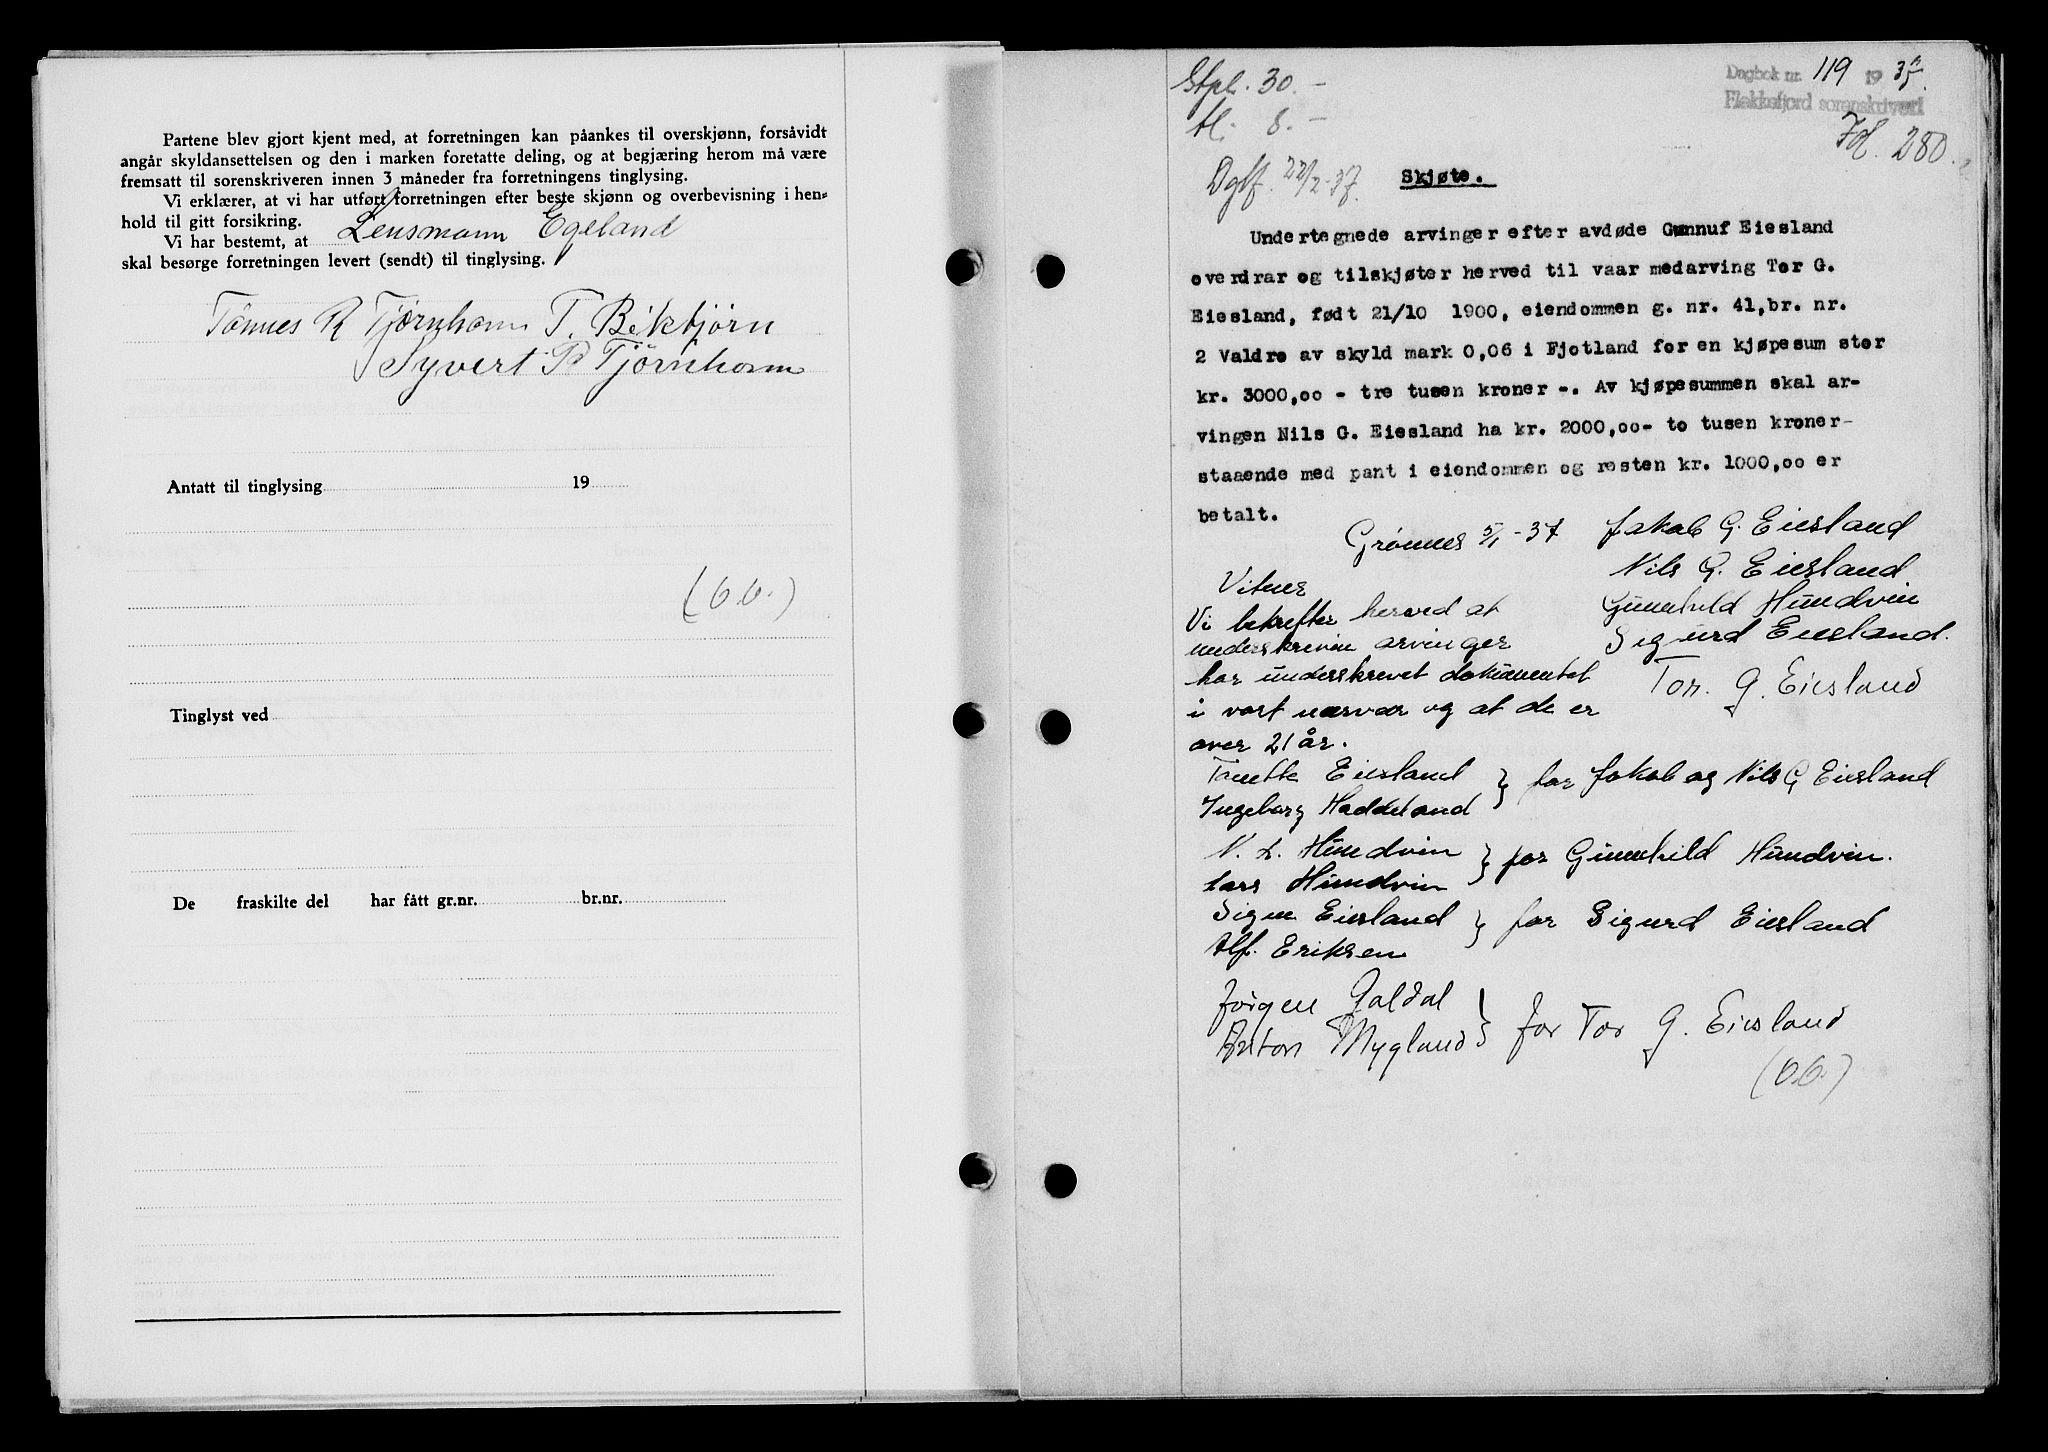 Partene blev gjort kjent med, at forretningen kan påankes til overskjønn, forsåvidt
angår skyldansettelsen og den i marken foretatte deling, og at begjæring herom må være
fremsatt til sorenskriveren innen 3 måneder fra forretningens tinglysing.
Vi erklærer, at vi har utført forretningen efter beste skjønn og overbevisning i hen=
hold til gitt forsikring.
Vi har bestemt, at Lensmann Egeland
skal besørge forretningen levert (sendt) til tinglysing.
Tønnes R Tjørnhom T. Bekbjørn
Syvert P Tjørnhom
Antatt til tinglysing 19
Tinglyst ved
De fraskilte del har fått gr.nr. br.nr.
Stpl. 30.-
tl. 8.-
Dagbok nr. 119 19 37.
Flekkefjord sorenskriveri
Fol. 280.
Dgbf. 22/2-37.
Skjøte.
Undertegnede arvinger efter avdøde Gunnuf Eiesland
overdrar og tilskjøter herved til vaar medarving Tor G.
Eiesland, født 21/10 1900, eiendommen g. nr. 41, br. nr.
2 Valdre av skyld mark 0,06 i Fjotland for en kjøpesum stor
kr. 3000,oo - tre tusen kroner -. Av kjøpesummen skal ar-
vingen Nils G. Eiesland ha kr. 2000,oo- to tusen kroner-
staaende med pant i eiendommen og resten kr. 1000,oo er
betalt.
Grønnes 5/1 - 37 Jakob G. Eiesland
Nils G. Eiesland
Gunnhild Hundvin
Sigurd Eiesland.
Tor. G. Eiesland
Vitner
Vi bekrefter herved at
underskrevne arvinger
har underskrevet dokumentet
i vort nærvær og at de er
over 21 år.
Tonette Eiesland
Ingeborg Haddeland } for Jakob og Nils G Eiesland
N. L. Hundvin
Lars Hundvin } for Gunnhild Hundvin.
Signe Eiesland
Alf. Eriksen } for Sigurd Eiesland
Jørgen Galdal
Anton Mygland } for Tor G. Eiesland